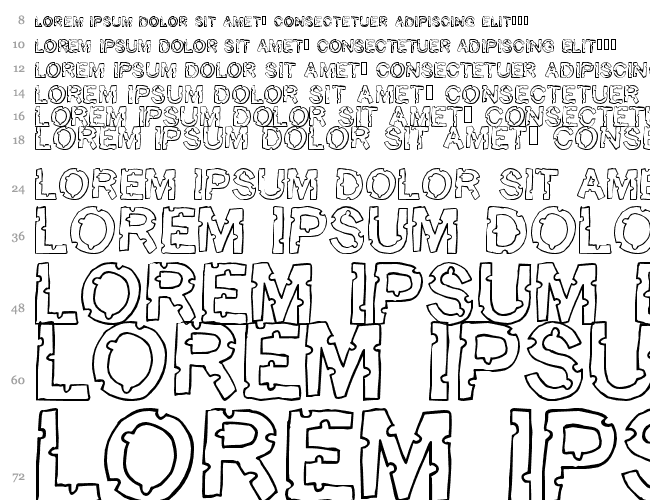 8 LOREM IPSUM DOLOR SIT AMET▯ CONSECTETUER ADIPISCING ELIT▯▯▯
10 LOREM IPSUM DOLOR SIT AMET▯ CONSECTETUER ADIPISCING ELIT▯▯▯
12 LOREM IPSUM DOLOR SIT AMET▯ CONSECTETUER ADIPISCING
14 LOREM IPSUM DOLOR SIT AMET▯ CONSECTETUER
16 LOREM IPSUM DOLOR SIT AMET▯ CONSECTETU
18 LOREM IPSUM DOLOR SIT AMET▯ CONSE
24 LOREM IPSUM DOLOR SIT AME
36 LOREM IPSUM DOLO
48 LOREM IPSUM
60 LOREM IPSU
72 LOREM IPS